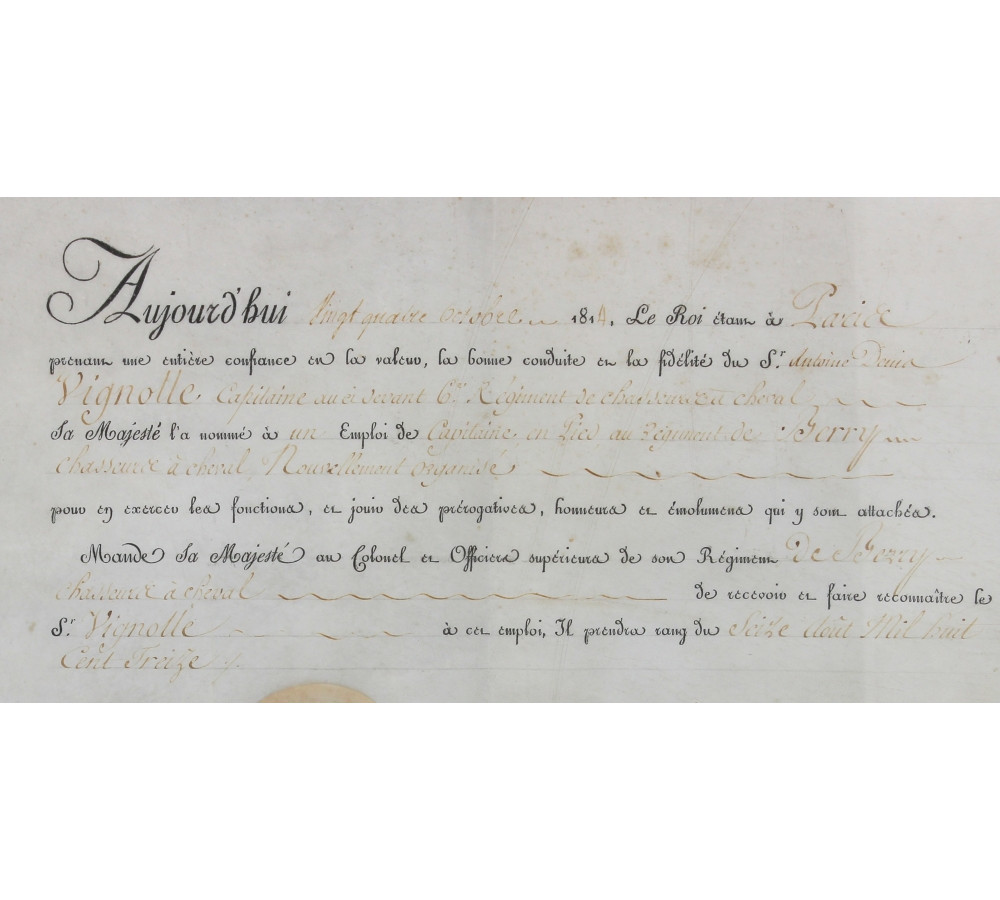 Aujourd'hui Vingt quatre Octobre 1814, Le Roi étant à Paris
prenant une entière confiance en la valeur, la bonne conduite et la fidélité du S.r Antoine Denis
Vignolle, Capitaine au ci devant 6.e Régiment de chasseurs à cheval
Sa Majesté l'a nommé à un Emploi de Capitaine en Pied au Régiment de Berry
chasseurs à cheval Nouvellement Organisé
pour en exercer les fonctions, et jouir des prérogatives, honneurs et émolumens qui y sont attachés.
Mande Sa Majesté au Colonel et Officiers supérieurs de son Régiment De Berry
chasseurs à cheval de recevoir et faire reconnaître le
S.r Vignolle à cet emploi, Il prendra rang du Seize Août Mil huit
Cent Treize